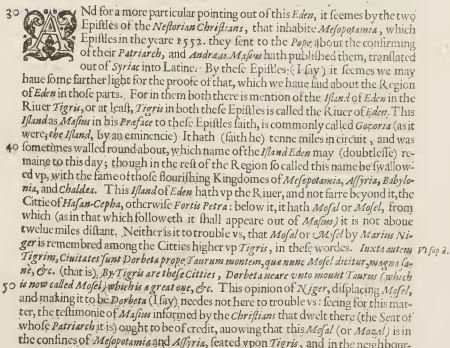 30 ANd for a more particular pointing out of this Eden, it seemes by the two
Epistles of the Nestorian Christians, that inhabite Mesopotamia, which
Epistles in the yeare 1552. they sent to the Pope about the confirming
of their Patriarch, and Andræas Masius hath published them, translated
out of Syriac into Latine. By these Epistles: (I say) it seemes we may
haue some farther light for the proofe of that, which we haue said about the Region
of Eden in those parts. For in them both there is mention of the Island of Eden in the
Riuer Tigris, or at least, Tigris in both these Epistles is called the Riuer of Eden. This
Island as Masius in his Præface to these Epistles saith, is commonly called Gozoria (as it
were, the Island, by an eminencie) It hath (saith he) tenne miles in circuit, and was
40 sometimes walled round about, which name of the Island Eden may (doubtlesse) re-
maine to this day; though in the rest of the Region so called this name be swallow-
ed vp, with the fame of those flourishing Kingdomes of Mesopotamia, Assyria, Babylo-
nia, and Chaldea. This Island of Eden hath vp the Riuer, and not farre beyond it, the
Cittie of Hasan-Cepha, otherwise Fortis Petra: below it, it hath Mosal or Mosel, from
which (as in that which followeth it shall appeare out of Masius) it is not aboue
twelue miles distant. Neither is it to trouble vs, that Mosal or Mosel by Marius Ni-
ger is remembred among the Citties higher vp Tigris, in these words. Iuxta autem
Tigrim, Ciuitates sunt Dorbeta prope Taurum montem, quæ nunc Mosel dicitur, magna sa-
ne, &c. (that is) By Tigris are these Citties, Dorbeta neare vnto mount Taurus (which
50 is now called Mosel) which is a great one, &c. This opinion of Niger, displacing Mosel,
and making it to be Dorbeta (I say) needes not here to trouble vs: seeing for this mat-
ter, the testimonie of Masius informed by the Christians that dwelt there (the Seat of
whose Patriarch it is) ought to be of credit, auowing that this Mosal (or Mozal) is in
the confines of Mesopotamia and Assyria, seated vpon Tigris, and in the neighbour-